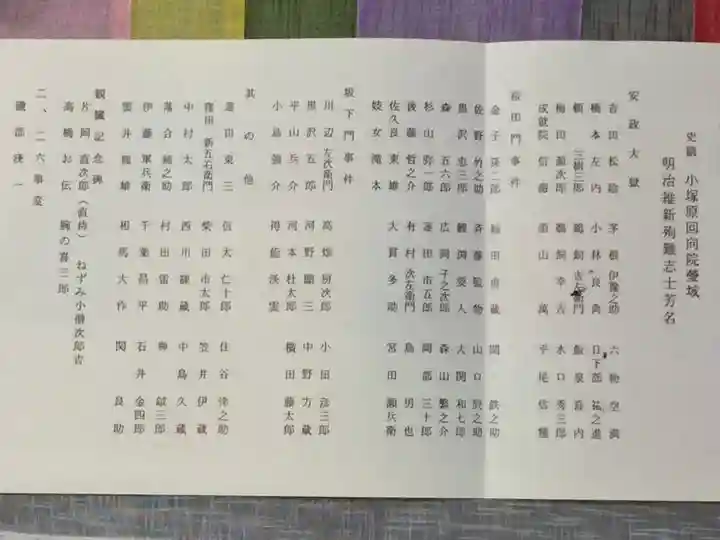 史蹟 小塚原回向院塋域
明治維新殉難志士芳名
安政大獄
吉田松陰 茅根伊豫之助 六物空満
橋本左内 小林良典 日下部祐之進
頼三樹三郎 鵜飼吉左衛門 飯泉喜内
梅田源次郎 鵜飼幸吉 水口秀三郎
成就院信海 平尾信種
桜田門事件
金子孫二郎 稲田重蔵 関鉄之助
佐野竹之助 斉藤監物 山口辰之助
黒沢忠三郎 鯉渕要人 大関和七郎
森五六郎 広岡子之次郎 森山繁之介
杉山弥一郎 蓮田市五郎 岡部三十郎
後藤哲之介 有村次左衛門 島男也
佐久良東雄 大貫多助 宮田瀬兵衛
妓女滝本
坂下門事件
川辺左次衛門 高畑房次郎 小田彦三郎
黒沢五郎 河野顕三 中野方蔵
平山兵介 河本杜太郎 横田藤太郎
小島強介 得能淡雲
其の他
蓮田東三 信太仁十郎 住谷寅之助
窪田新五右衛門 柴田市太郎 笠井伊蔵
中村太郎 西川練蔵 中島久蔵
落合織之助 村田雷助
伊藤軍兵衛 千葉昌平 石井金四郎
雲井龍雄 相馬大作 関良助
観臓記念碑
片岡直次郎(直侍) ねずみ小僧次郎吉
高橋お伝 腕の喜三郎
二、二六事変
磯部浅一